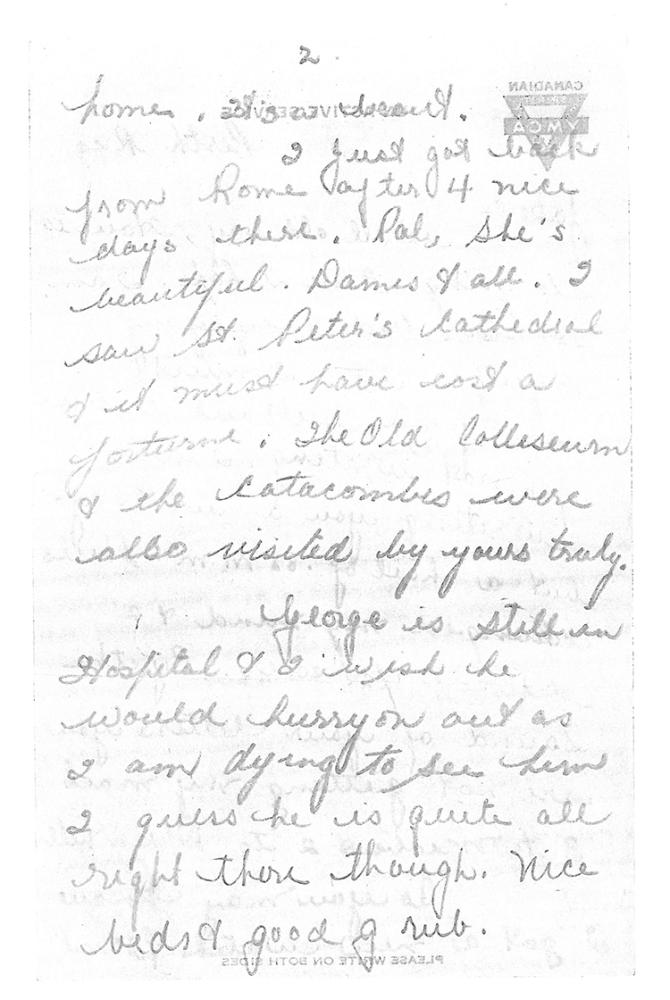 2.
home.
CANADIAN
YMCA
I just got back
from Rome after 4 nice
days there. Pal, she's
beautiful. Dames & all. I
saw St. Peter's Cathedral
& it must have cost a
forturne. The Old Colliseum
& the Catacombs were
also visited by yours truly.
George is still in
Hospital & I wish he
would hurry on out as
I am dying to see him
I guess he is quite all
right there though. Nice
beds & good g rub.
PLEASE WRITE ON BOTH SIDES